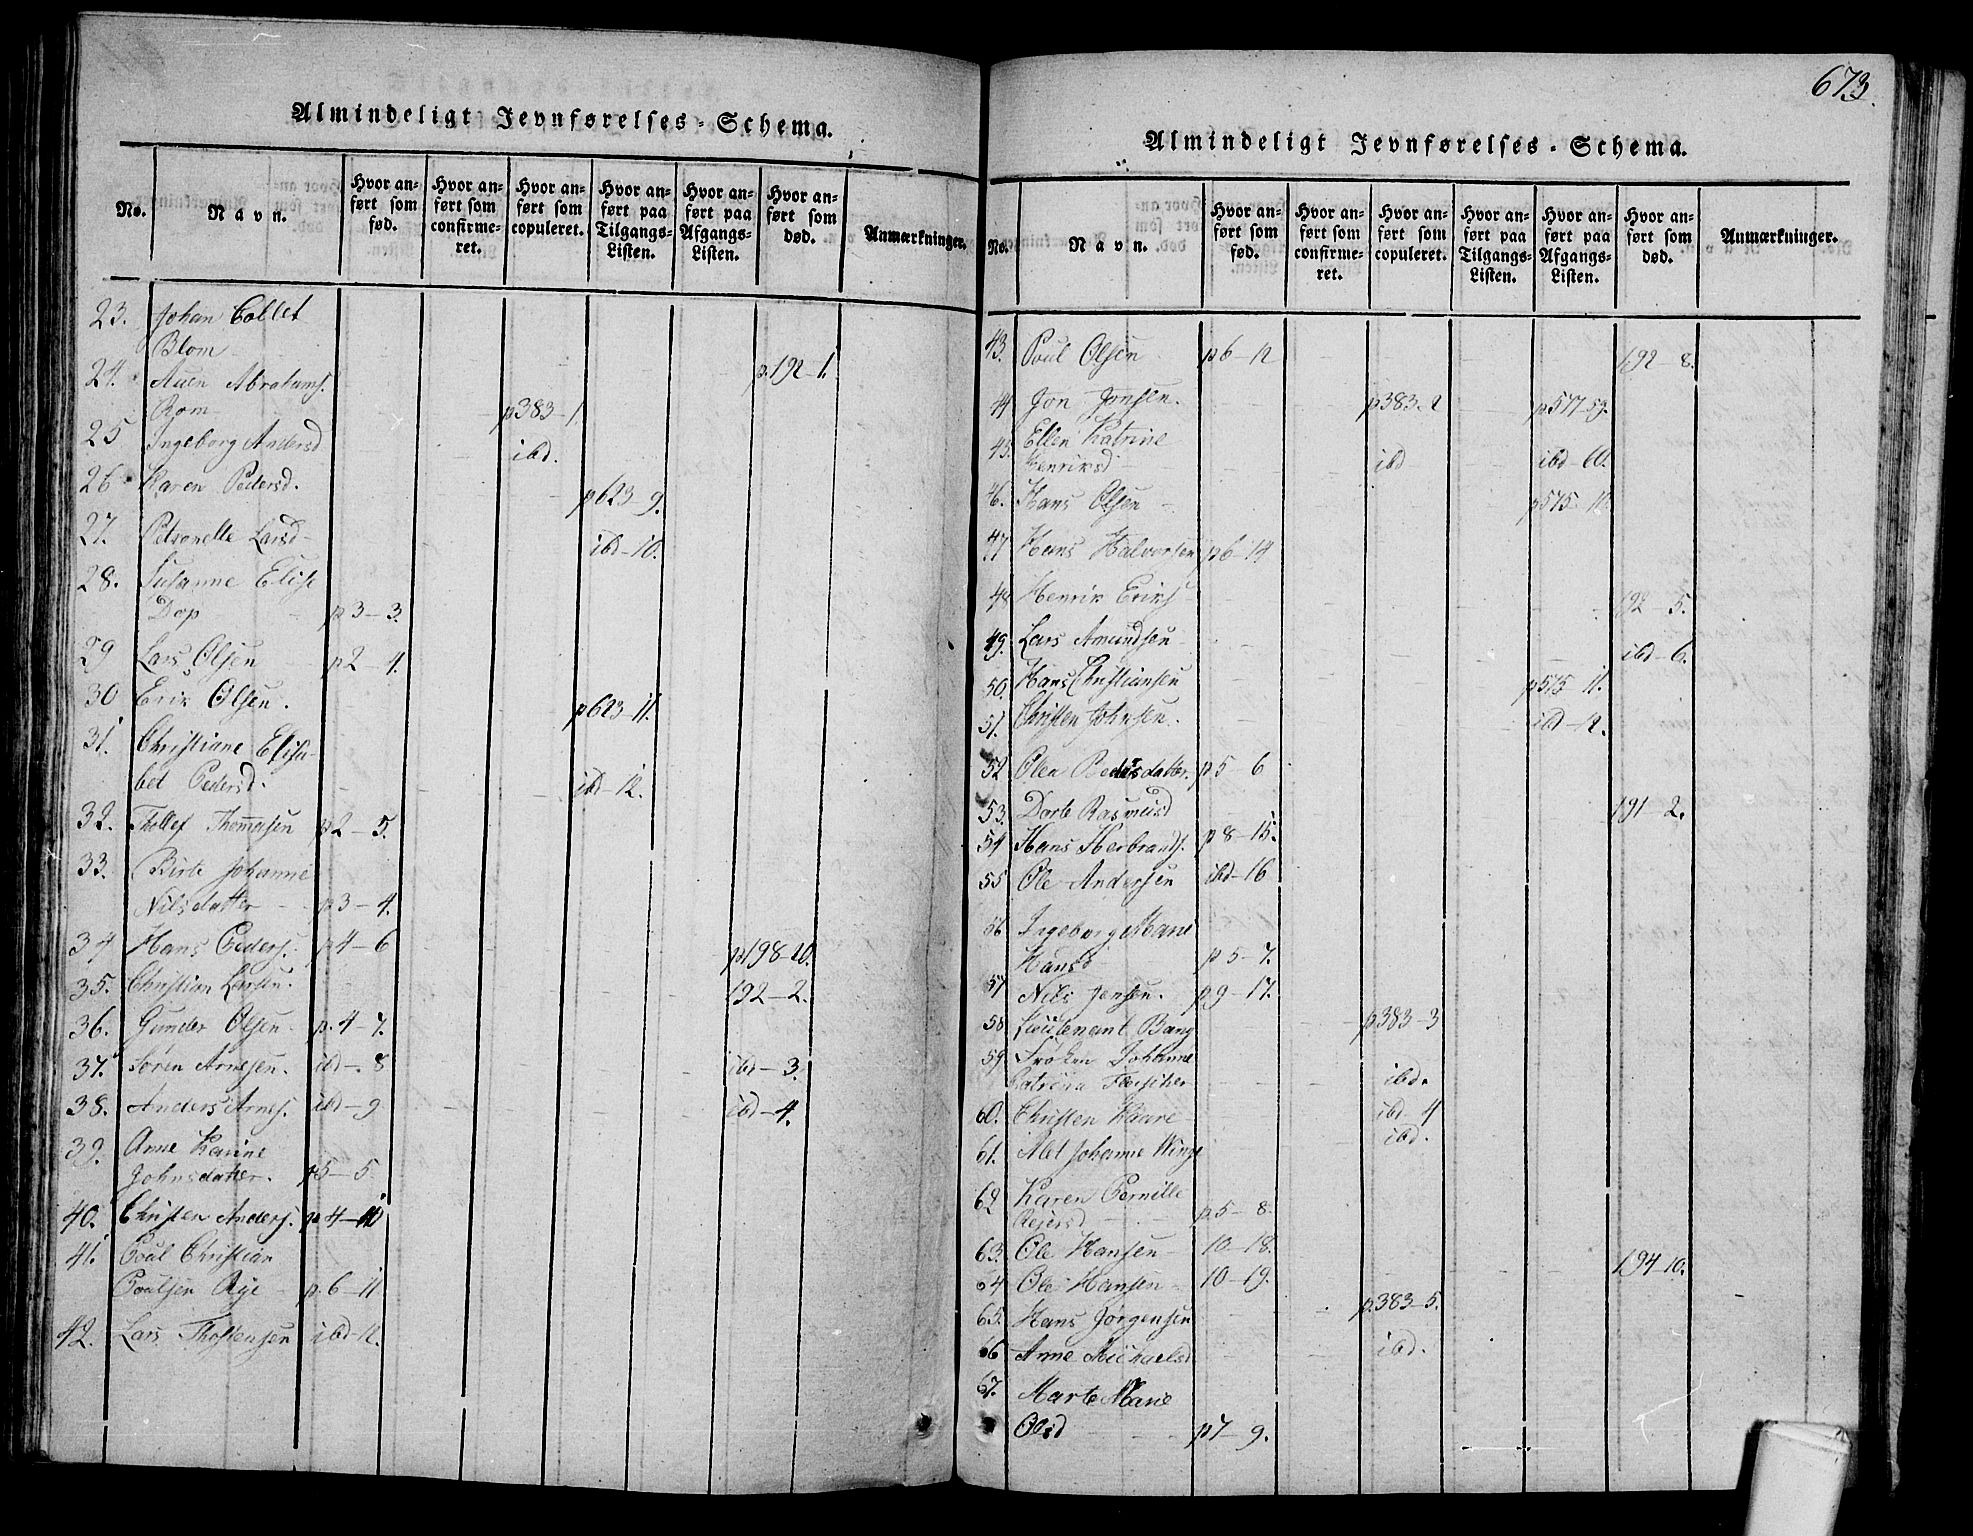 Almindeligt Jevnførelses-Schema.
No. Navn. Hvor anført som fød. Hvor anført som confirmeret. Hvor anført som copuleret. Hvor anført paa Tilgangs-Listen. Hvor anført paa Afgangs-Listen. Hvor anført som død. Anmærkninger.
23. Johan Collet
Blom p.192-1.
24. Auen Abrahams.
Rom p383-1.
25 Ingeborg Andersd ibd.
26 Karen Pedersd. p623-9.
27. Petronelle Larsd- ibd-10.
28. Susanne Elise
Dop p3-3.
29 Lars Olsen p2-4.
30 Erik Olsen. p623-11.
31. Christiane Elisa-
bet Pedersd. ibd-12.
32. Thollef Thomasen p2-5.
33. Birte Johanne
Nilsdatter p3-4.
34 Hans Peders. p4-6 p198-20.
35. Christian Larsen. 192-2.
36. Gunder Olsen. p.4-7.
37. Søren Arnesen. ibd-.8 ibd-3.
38. Anders Arnes. ibd-9 ibd-4.
39. Anne Karine
Johnsdatter. p5-5.
40. Christen Anders. p4-10
41. Poul Christian
Poulsen Rye p.6-11
42. Lars Thostensen ibd-12.
673.
Almindeligt Jevnførelses-Schema.
No. Navn. Hvor anført som fød. Hvor anført som confirmeret. Hvor anført som copuleret. Hvor anført paa Tilgangs-Listen. Hvor anført paa Afgangs-Listen. Hvor anført som død. Anmærkninger.
43. Poul Olsen p6-12 192-8.
44 Jon Jonsen. p383.2 p577-59.
45. Ellen Katrine
Henriksd ibd ibd-60.
46. Hans Olsen p575-10.
47 Hans Halvorsen p6-14
48 Henrik Eriks 192-5.
49. Lars Amundsen ibd-6.
50. Hans Christiansen p575-11.
51. Christen Johnsen. ibd-12.
52 Olen Pedersdatter. p5-6
53. Dorte Rasmusd 191-2.
54 Hans Herbrands. p8-15.
55 Ole Andersen ibd-16
56 Ingeborg Marie
Hansd p5-7.
57 Nils Jensen. p9-17.
58 Lieutenant Bang p383-3
59 Frøken Johanne
Catrina Fleischer ibd.
60. Christen Kaare ibd-4
61. Alet Johanne Winge ibd.
62 Karen Pernille
Reiersd p.5-8
63. Ole Hansen 10-18.
64 Ole Hansen 10-19. 194-10.
65. Hans Jørgensen p.383-5.
66 Anne Michaelsd ibd.
67. Marte Marie
Olsd p7-9.